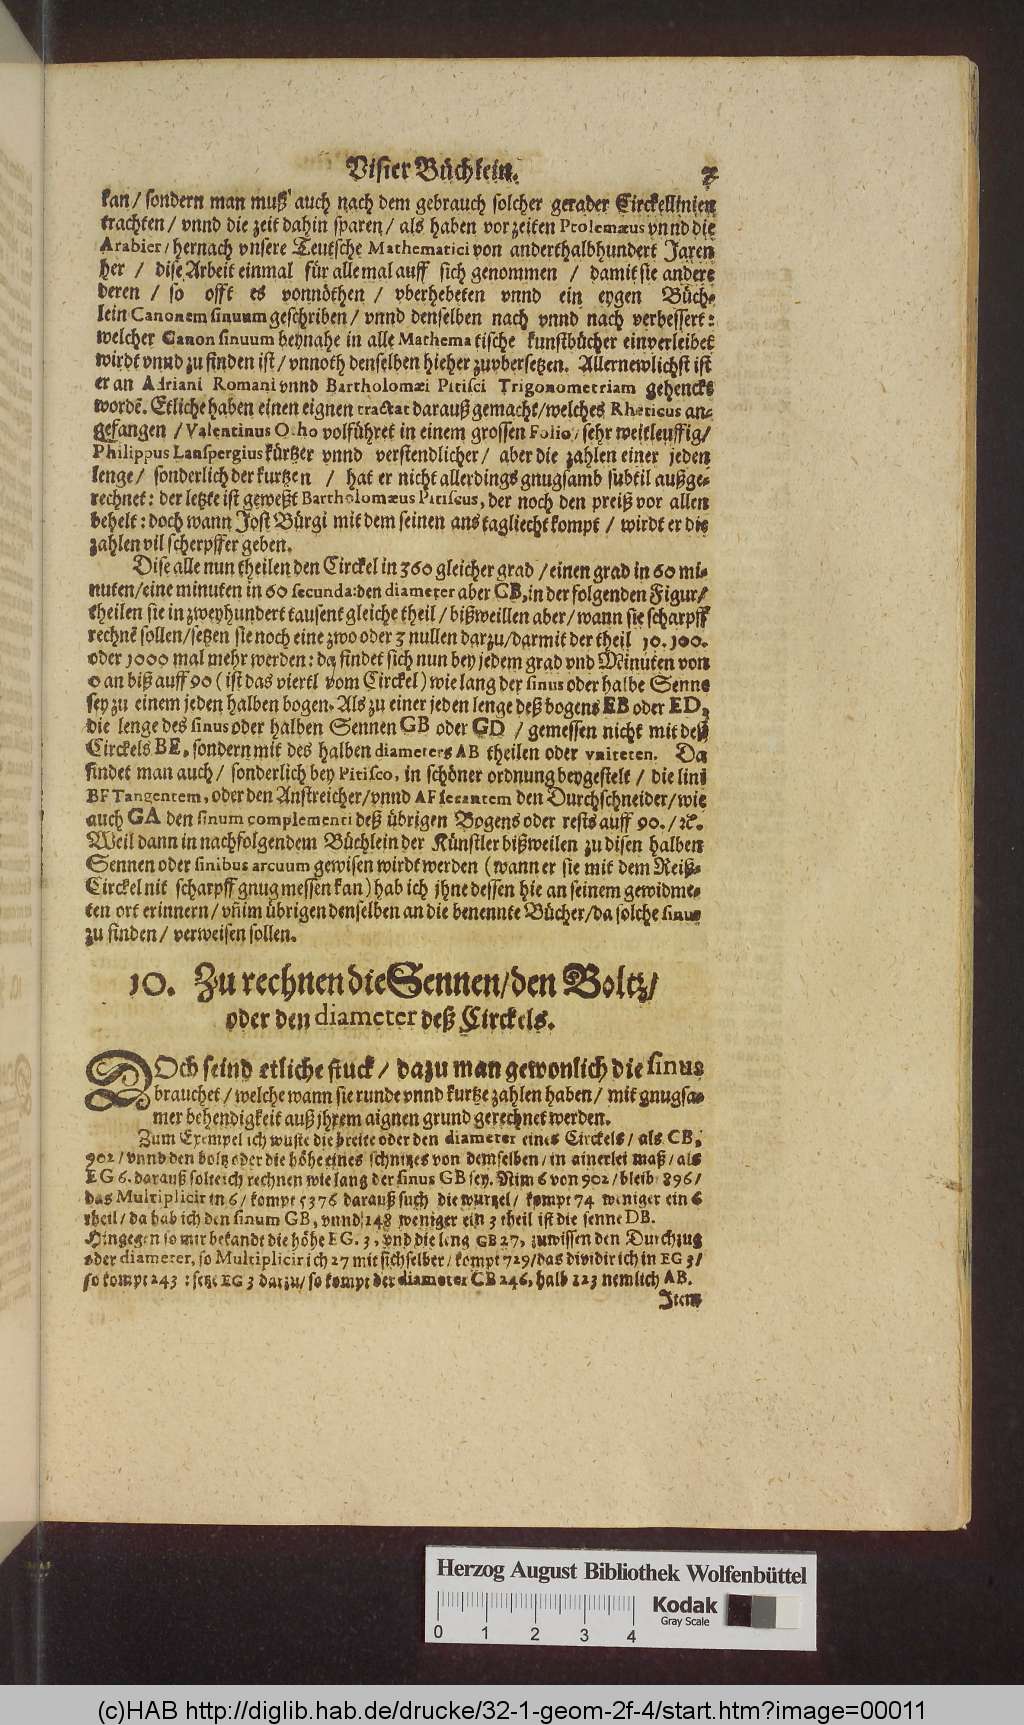 Visier Büchlein.
7
kan / sondern man muß auch nach dem gebrauch solcher gerader Circkellinien
trachten / vnnd die zeit dahin sparen / als haben vor zeiten Ptolemæus vnnd die
Arabier / hernach vnsere Teutsche Mathematici von anderthalbhundert Jaren
her / dise Arbeit einmal für alle mal auff sich genommen / damit sie andere
deren / so offt es vonnöthen / vberhebeten vnnd ein eygen Büch-
lein Canonem sinuum geschriben / vnnd denselben nach vnnd nach verbessert:
welcher Canon sinuum beynahe in alle Mathematische kunstbücher einverleibet
wirdt vnnd zu finden ist / vnnoth denselben hieher zuvbersetzen. Allernewlichst ist
er an Adriani Romani vnnd Bartholomæi Pitisci Trigonometriam gehenckt
wordẽ. Etliche haben einen eignen tractat darauß gemacht/welches Rheticus an-
gefangen / Valentinus Otho volführet in einem grossen Folio, sehr weitleuffig/
Philippus Lanspergius kürtzer vnnd verstendlicher / aber die zahlen einer jeden
lenge / sonderlich der kurtzen / hat er nicht allerdings gnugsamb subtil außge-
rechnet: der letzte ist geweßt Bartholomæus Pitiscus, der noch den preiß vor allen
behelt: doch wann Jost Bürgi mit dem seinen ans tagliecht kompt / wirdt er die
zahlen vil scherpffer geben.
Dise alle nun theilen den Circkel in 360 gleicher grad / einen grad in 60 mi-
nuten/eine minuten in 60 secunda: den diameter aber CB, in der folgenden Figur/
theilen sie in zweyhundert tausent gleiche theil / bißweillen aber / wann sie scharpff
rechnẽ sollen/setzen sie noch eine zwo oder 3 nullen darzu/darmit der theil 10. 100.
oder 1000 mal mehr werden: da findet sich nun bey jedem grad vnd Minuten von
0 an biß auff 90 (ist das viertl vom Circkel) wie lang der sinus oder halbe Senne
sey zu einem jeden halben bogen. Als zu einer jeden lenge deß bogens EB oder ED,
die lenge des sinus oder halben Sennen GB oder GD / gemessen nicht mit deß
Circkels BE, sondern mit des halben diameters AB theilen oder vniteten. Da
findet man auch / sonderlich bey Pitisco, in schöner ordnung beygestelt / die lini
BF Tangentem, oder den Anstreicher/vnnd AF secantem den Durchschneider/wie
auch GA den sinum complementi deß übrigen Bogens oder rests auff 90. / ꝛc.
Weil dann in nachfolgendem Büchlein der Künstler bißweilen zu disen halben
Sennen oder sinibus arcuum gewisen wirdt werden (wann er sie mit dem Reiß-
Circkel nit scharpff gnug messen kan) hab ich jhne dessen hie an seinem gewidme-
ten ort erinnern / vñ im übrigen denselben an die benennte Bücher/da solche sinus
zu finden / verweisen sollen.
10. Zu rechnen die Sennen/den Boltz/
oder den diameter deß Circkels.
DOch seind etliche stuck / dazu man gewonlich die sinus
brauchet / welche wann sie runde vnnd kurtze zahlen haben / mit gnugsa-
mer behendigkeit auß jhrem aignen grund gerechnet werden.
Zum Exempel ich wuste die breite oder den diameter eines Circkels / als CB,
902 / vnnd den boltz oder die höhe eines schnitzes von demselben / in ainerlei maß / als
EG 6. darauß solte ich rechnen wie lang der sinus GB sey. Nim 6 von 902 / bleibt 896 /
das Multiplicir in 6 / kompt 5376 darauß such die wurtzel / kompt 74 weniger ein 6
theil / da hab ich den sinum GB, vnnd 148 weniger ein 3 theil ist die senne DB.
Hingegen so mir bekandt die höhe EG. 3, vnd die leng GB 27, zuwissen den Durchzug
oder diameter, so Multiplicir ich 27 mit sich selber / kompt 729/das dividir ich in EG 3/
so kompt 243 : setze EG 3 darzu/ so kompt der diameter CB 246, halb 123 nemlich AB.
Item
Herzog August Bibliothek Wolfenbüttel
Kodak
Gray Scale
0 1 2 3 4
(c)HAB http://diglib.hab.de/drucke/32-1-geom-2f-4/start.htm?image=00011